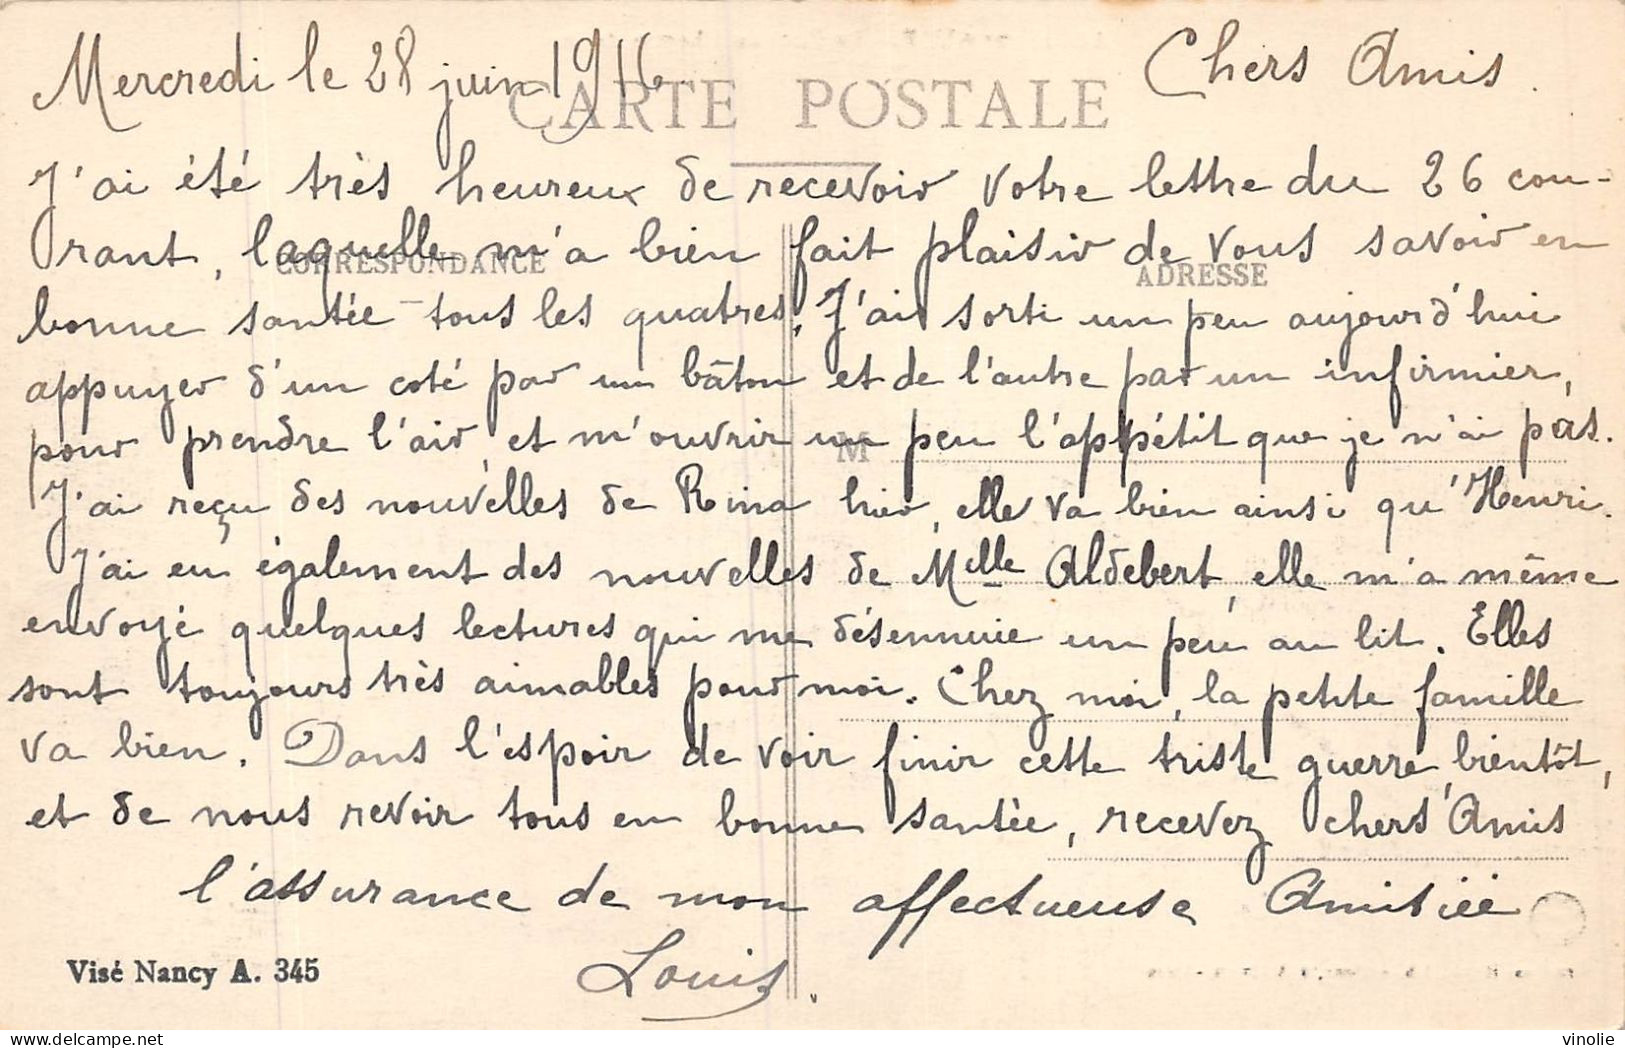 Mercredi le 28 juin 1916. Chers Amis.
CARTE POSTALE
J'ai été très heureux de recevoir votre lettre du 26 cou-
rant, laquelle m'a bien fait plaisir de vous savoir en
CORRESPONDANCE ADRESSE
bonne santée tous les quatres. J'ai sorti un peu aujourd'hui
appuyer d'un coté par un bâton et de l'autre par un infirmier,
pour prendre l'air et m'ouvrir un peu l'appétit que je n'ai pas.
M
J'ai reçu des nouvelles de Rina hier, elle va bien ainsi qu'Henri.
J'ai eu également des nouvelles de Melle Aldebert, elle m'a même
envoyé quelques lectures qui me désennuie un peu au lit. Elles
sont toujours très aimables pour moi. Chez moi, la petite famille
va bien. Dans l'espoir de voir finir cette triste guerre bientôt,
et de nous revoir tous en bonne santée, recevez chers Amis
l'assurance de mon affectueuse Amitiée
Louis.
Visé Nancy A. 345
vinolie